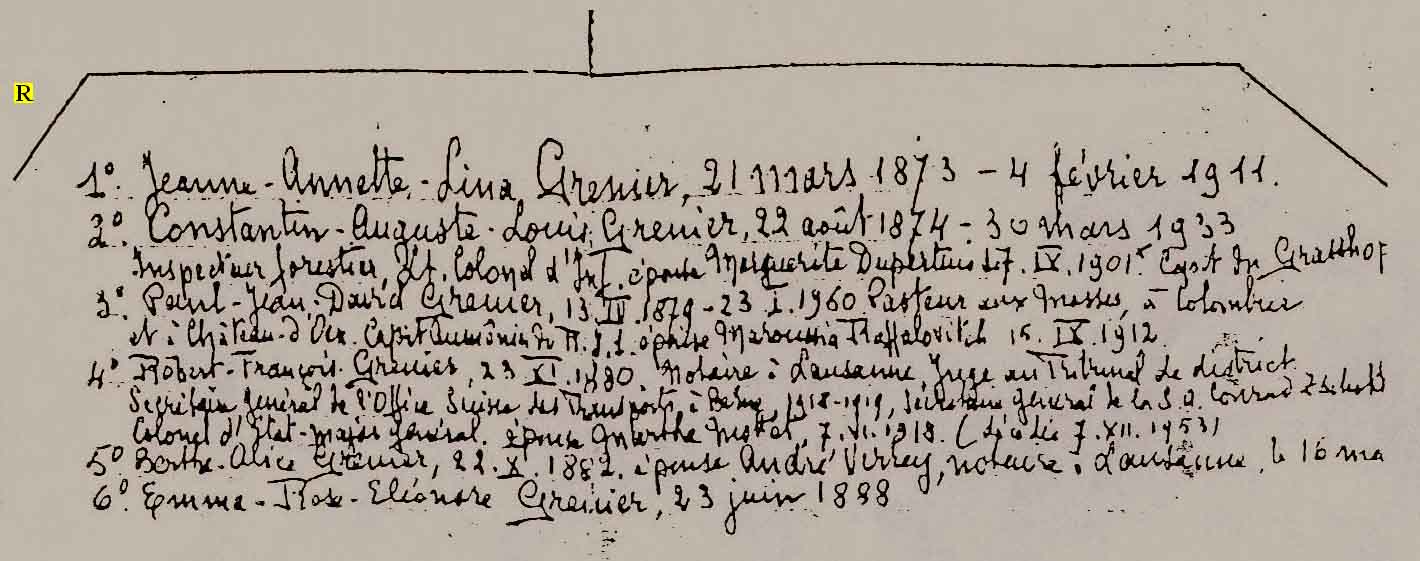 R
1º. Jeanne-Annette-Lina Grenier, 21 mars 1873 - 4 février 1911.
2º. Constantin-Auguste-Louis Grenier, 22 août 1874 - 30 mars 1933
Inspecteur forestier, Lt. Colonel d'Inf. épouse Marguerite Dupertuis 17. IX. 1901.
3º. Paul-Jean-David Grenier, 13. IV. 1879 - 23 I. 1960 Pasteur aux Mosses, à Colombier
et à Château-d'Oex. Capit Aumônier épouse Maroussia Raffalovitch 15. IX. 1912.
4º Robert-François Grenier, 23 XI. 1880. Notaire à Lausanne, Juge au Tribunal de district.
Secrétaire général de l'Office Suisse des Transports, à Berne, 1918-1919, secrétaire général de la S.A. Conrad Zschokke
Colonel d'Etat-major général. épouse Marthe 7. VI. 1918. (décédé 7. XII. 1953)
5º Berthe-Alice Grenier, 22. X. 1882. épouse André Verrey, notaire à Lausanne, le 16 ma
6º. Emma-Rose-Eléonore Grenier, 23 juin 1888